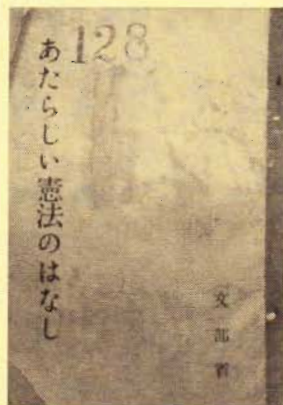 128
あたらしい憲法のはなし
文部省